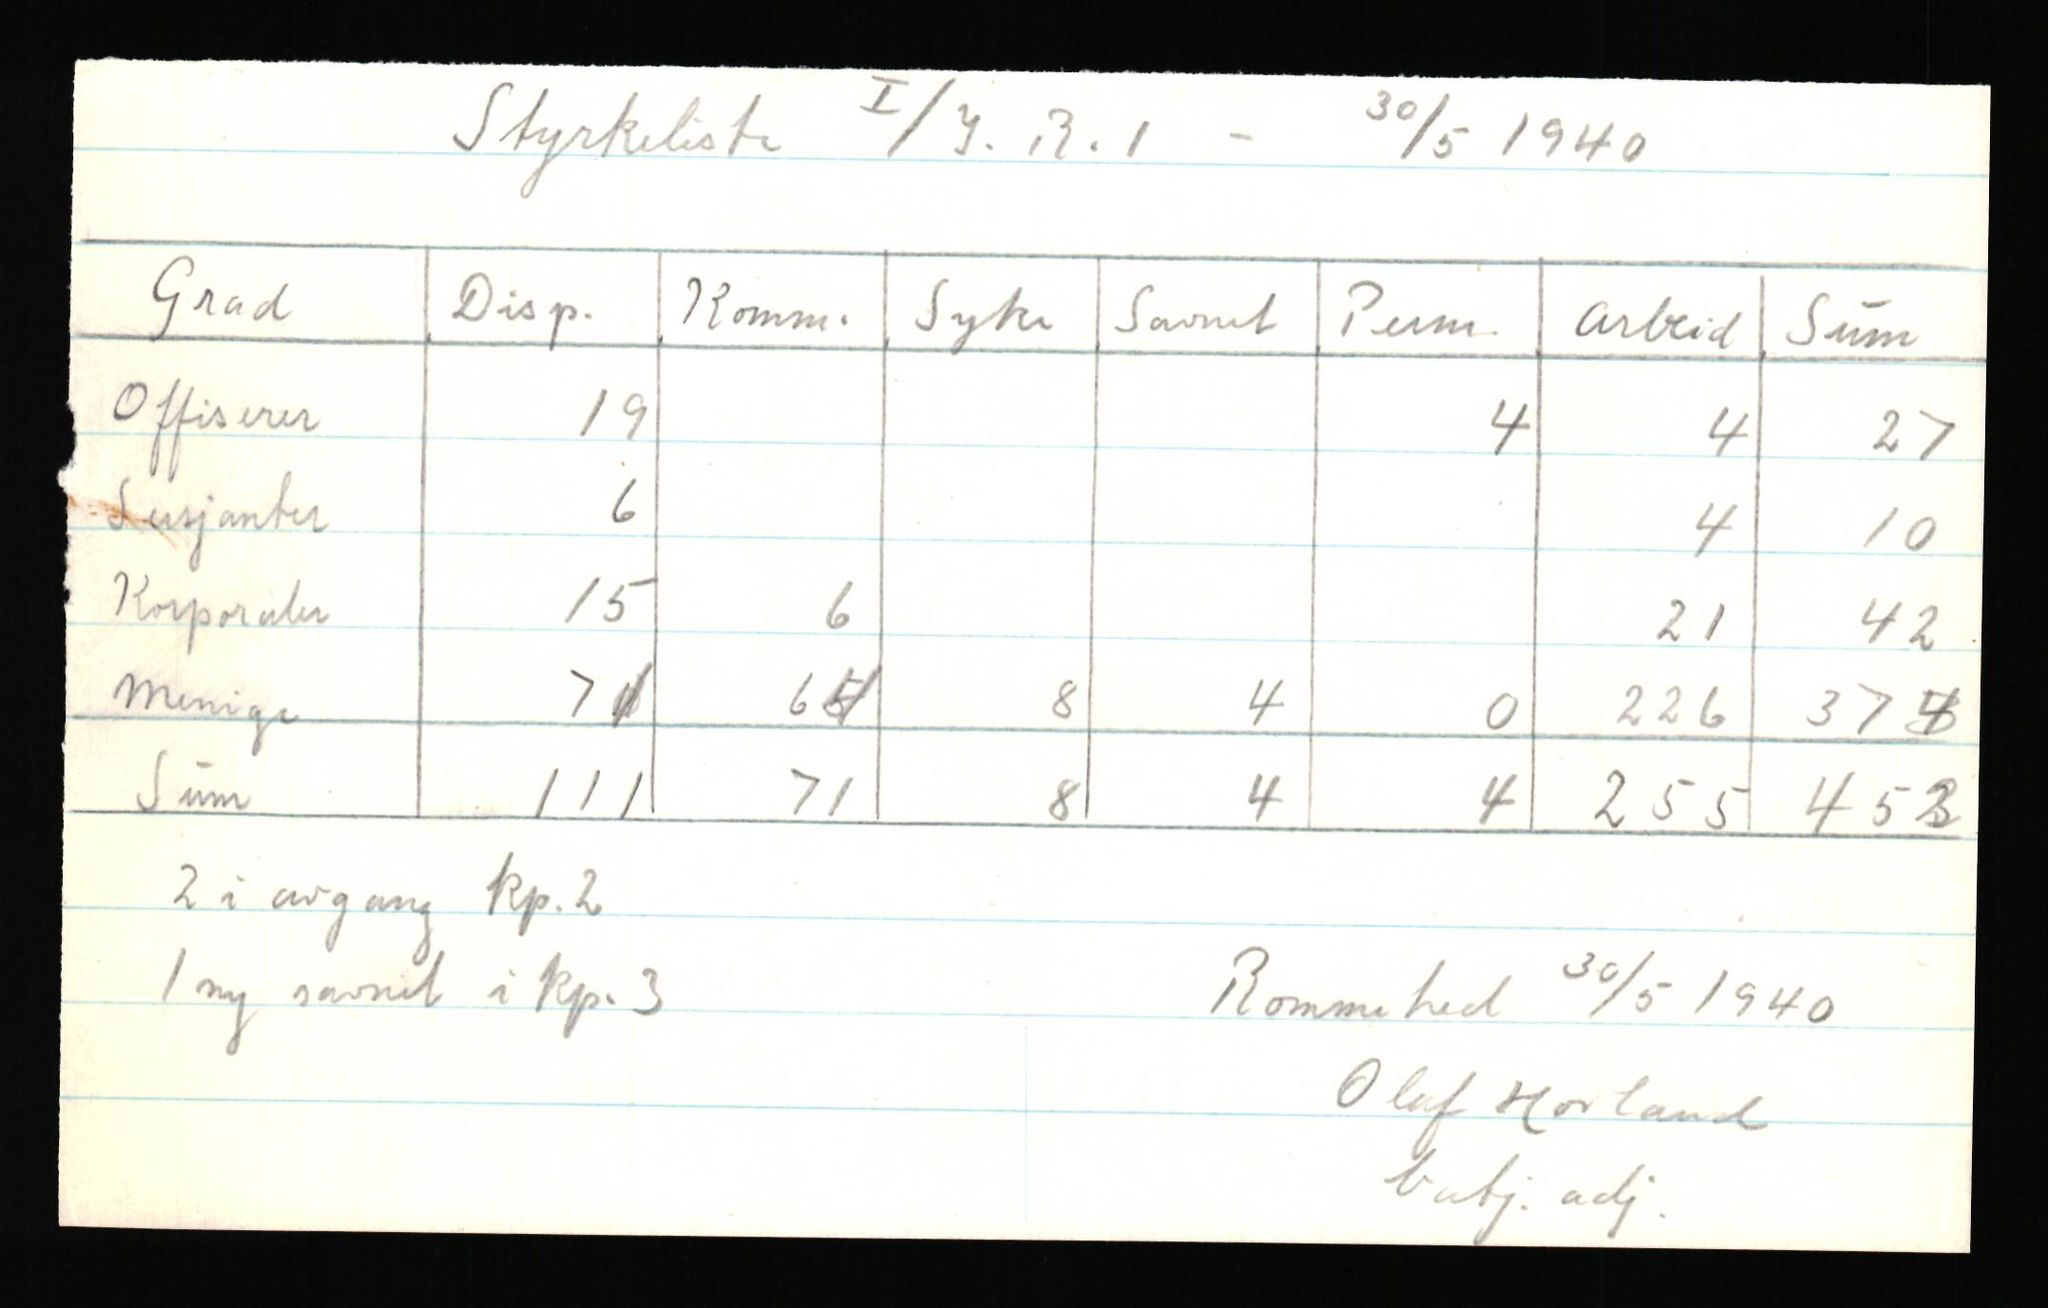 Styrkeliste I/I.R.1 - 30/5 1940
Grad Disp. Komm. Syke Savnet Perm. Arbeid Sum
Offiserer 19 4 4 27
Sersjanter 6 4 10
Korporaler 15 6 21 42
Menige 71 65 8 4 0 226 374
Sum 111 71 8 4 4 255 453
2 i avgang kp. 2
1 ny savnet i kp. 3
Rommehed 30/5 1940
Olaf Hovland
batj. adj.